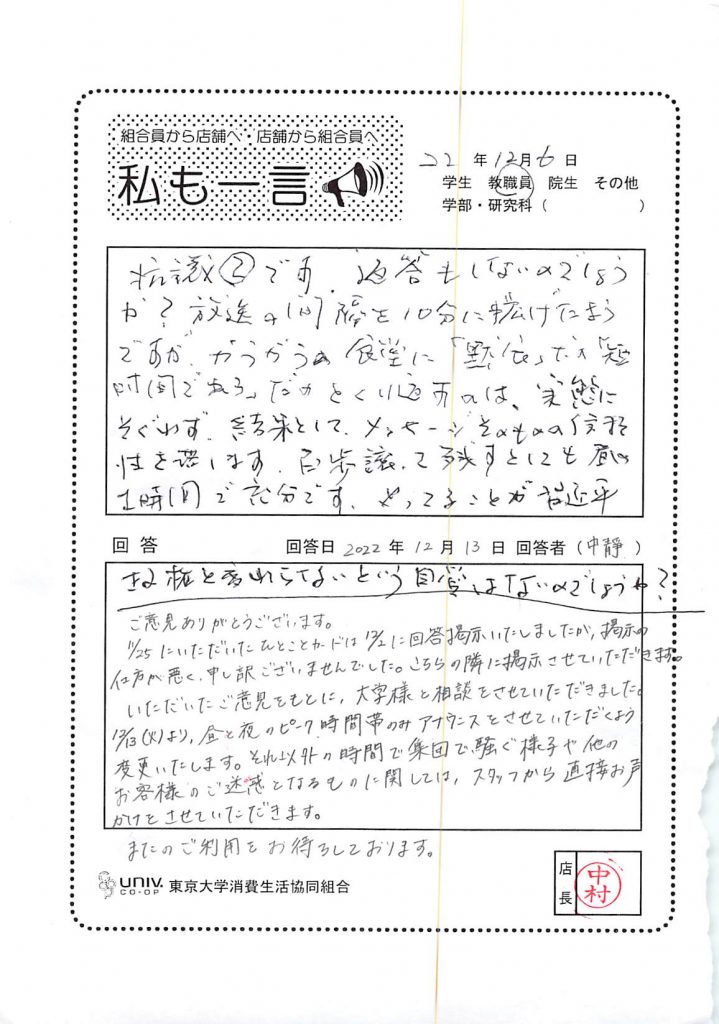 組合員から店舗へ・店舗から組合員へ
私も一言
22年12月6日
学生 教職員 院生 その他
学部・研究科( )
抗議②です。返答もしないのでしょう
か?放送の間隔を10分に拡げたよう
ですが、がらがらの食堂に「黙食」だの「短
時間である」だのとくり返すのは、実態に
そぐわず、結果として、メッセージそのものの信頼
性を譲歩して残すとしても昼の
1時間で充分です。やってることが習近平
回答 回答日 2022年12月13日 回答者(中靜)
政権と言われらないという自覚はないのでしょうか?
ご意見ありがとうございます。
11/25にいただいたひとことカードは12/2に回答掲示いたしましたが、掲示の
仕方が悪く、申し訳ございませんでした。こちらの隣に掲示させていただきます。
いただいたご意見をもとに、大学様と相談をさせていただきました。
12/13(火)より、昼と夜のピーク時間帯のみアナウンスをさせていただくよう
変更いたします。それ以外の時間で集団で騒ぐ様子や他の
お客様のご迷惑となるものに関しては、スタッフから直接お声
かけをさせていただきます。
またのご利用をお待ちしております。
UNIV. CO-OP 東京大学消費生活協同組合
店長 中村